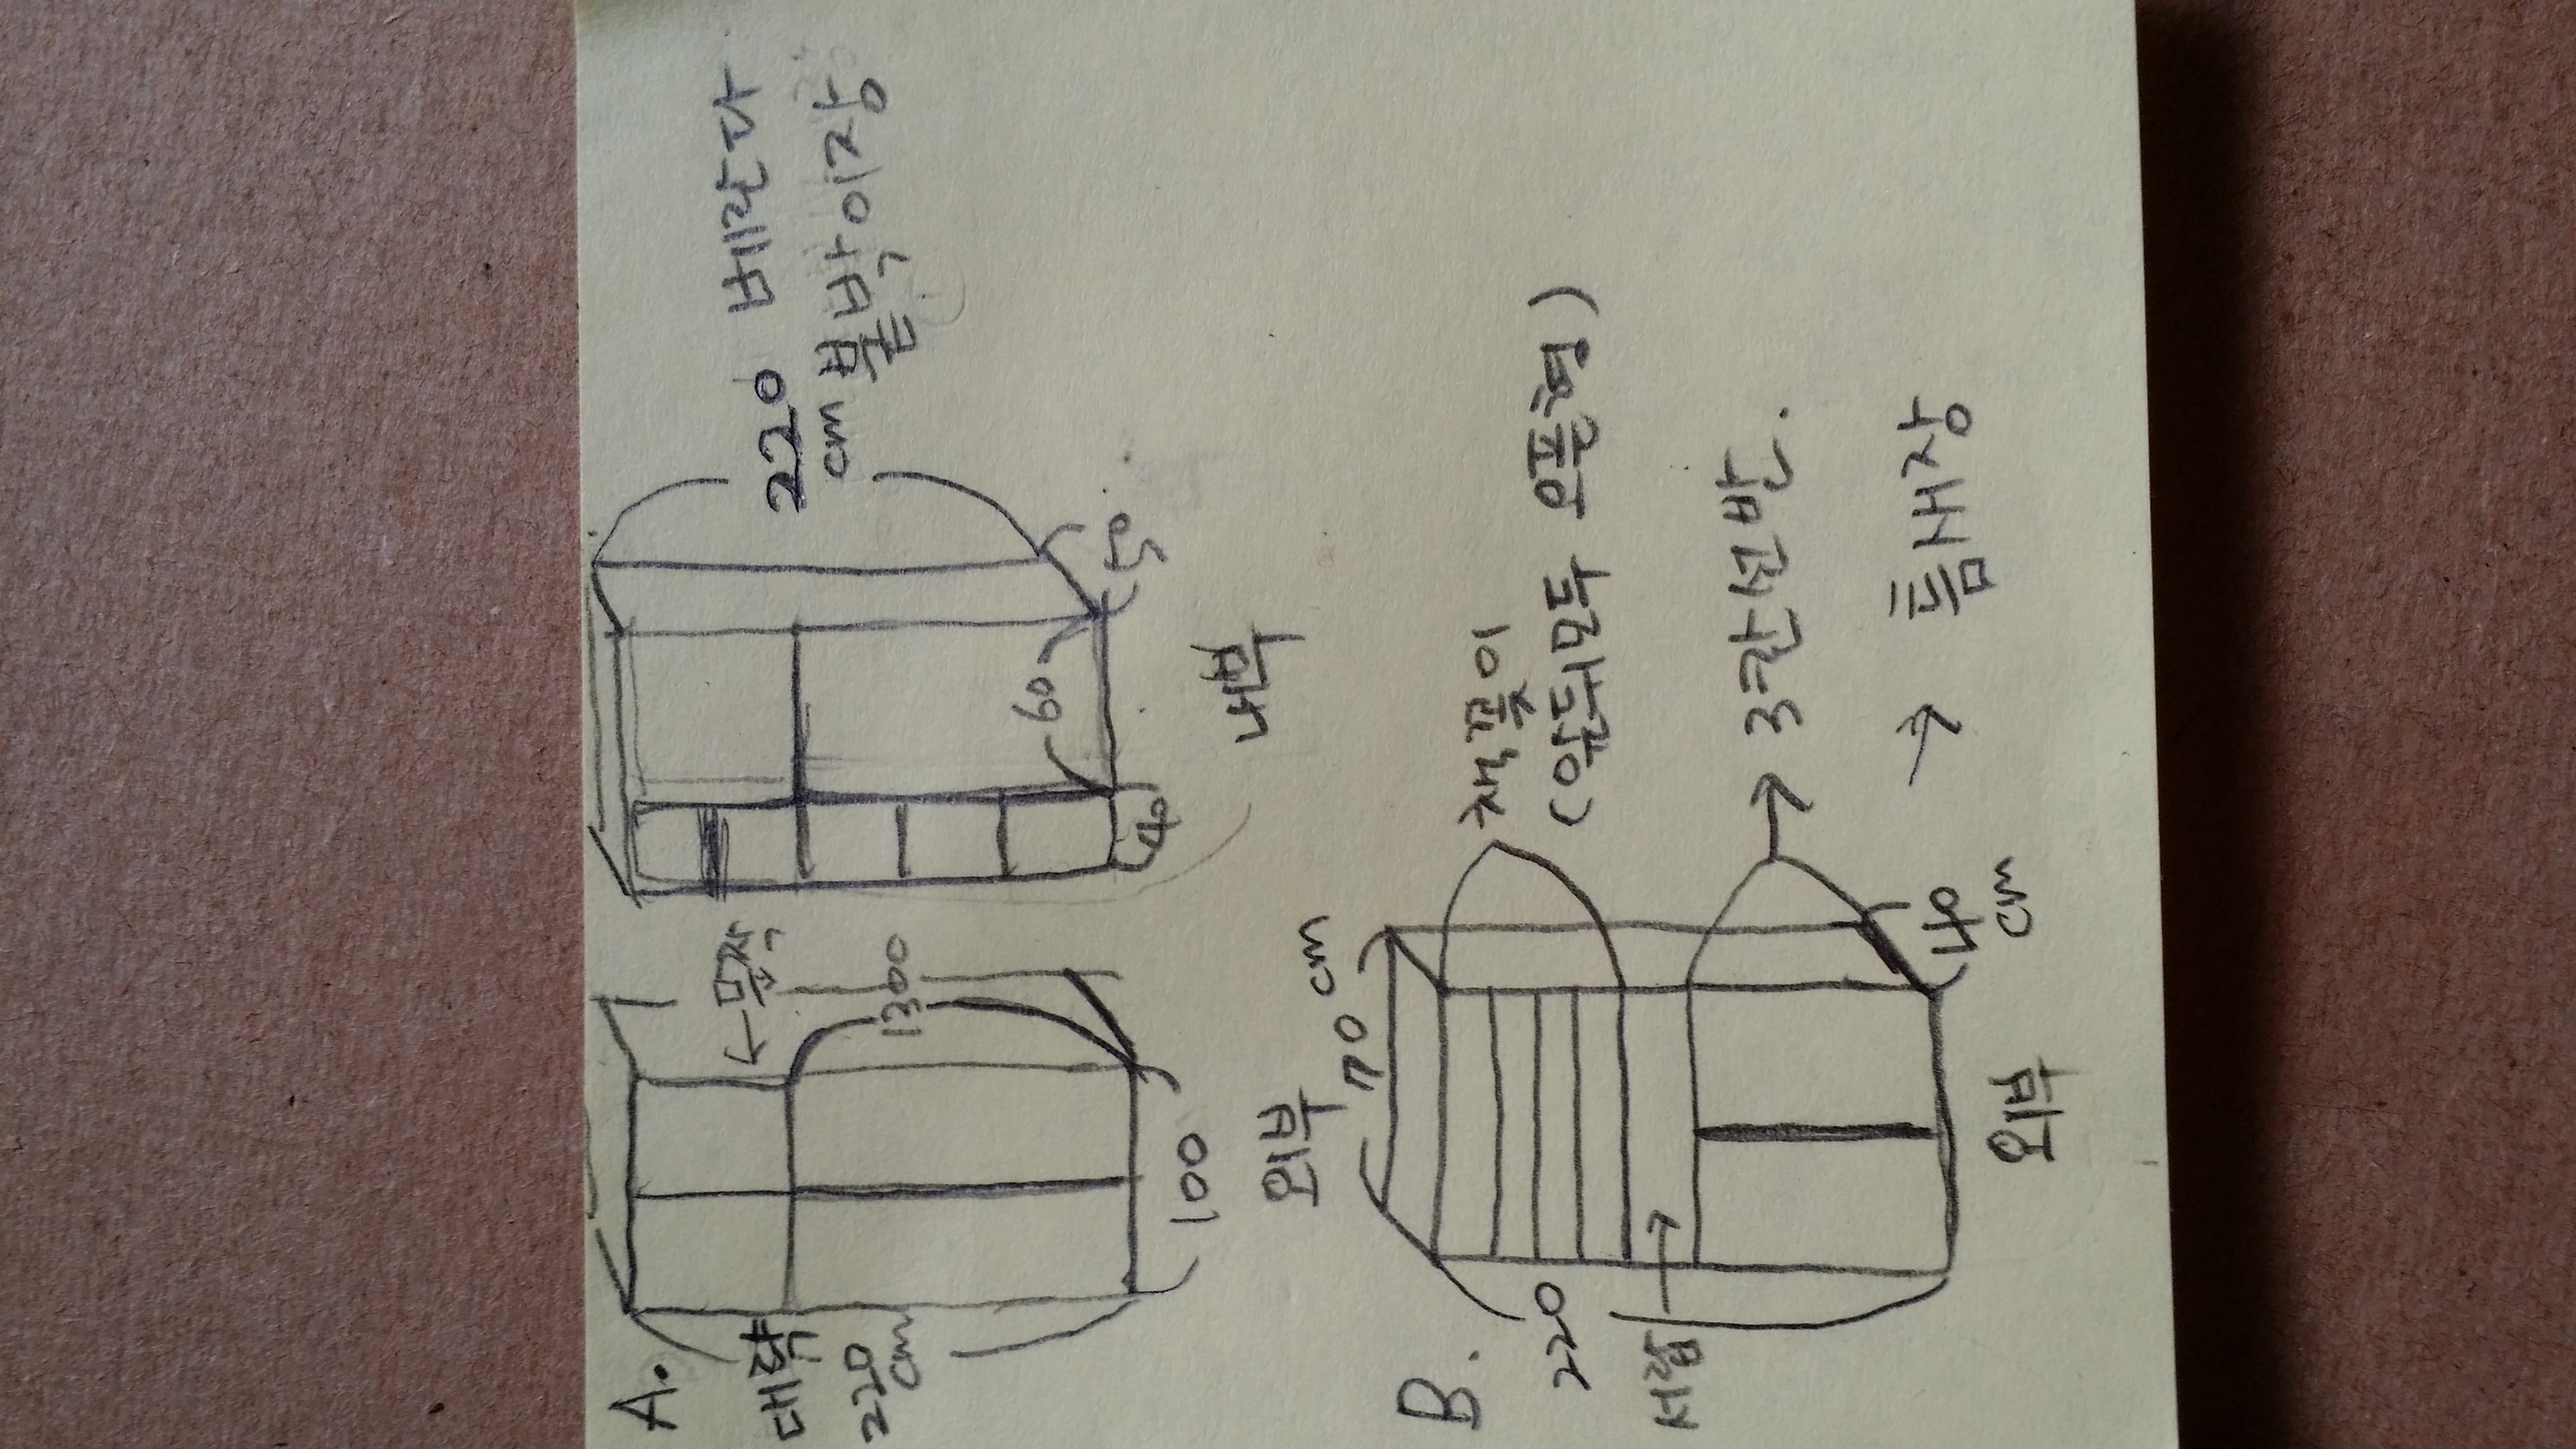 A.
대략
220
cm
문짝
1300
100
외부
220
cm
베란다
붙박이장
60
40
50
내부
B.
70 cm
220
서랍
책꽂이
(앞뒤면두 오픈형)
3칸선반.
틈새장
40
cm
외부